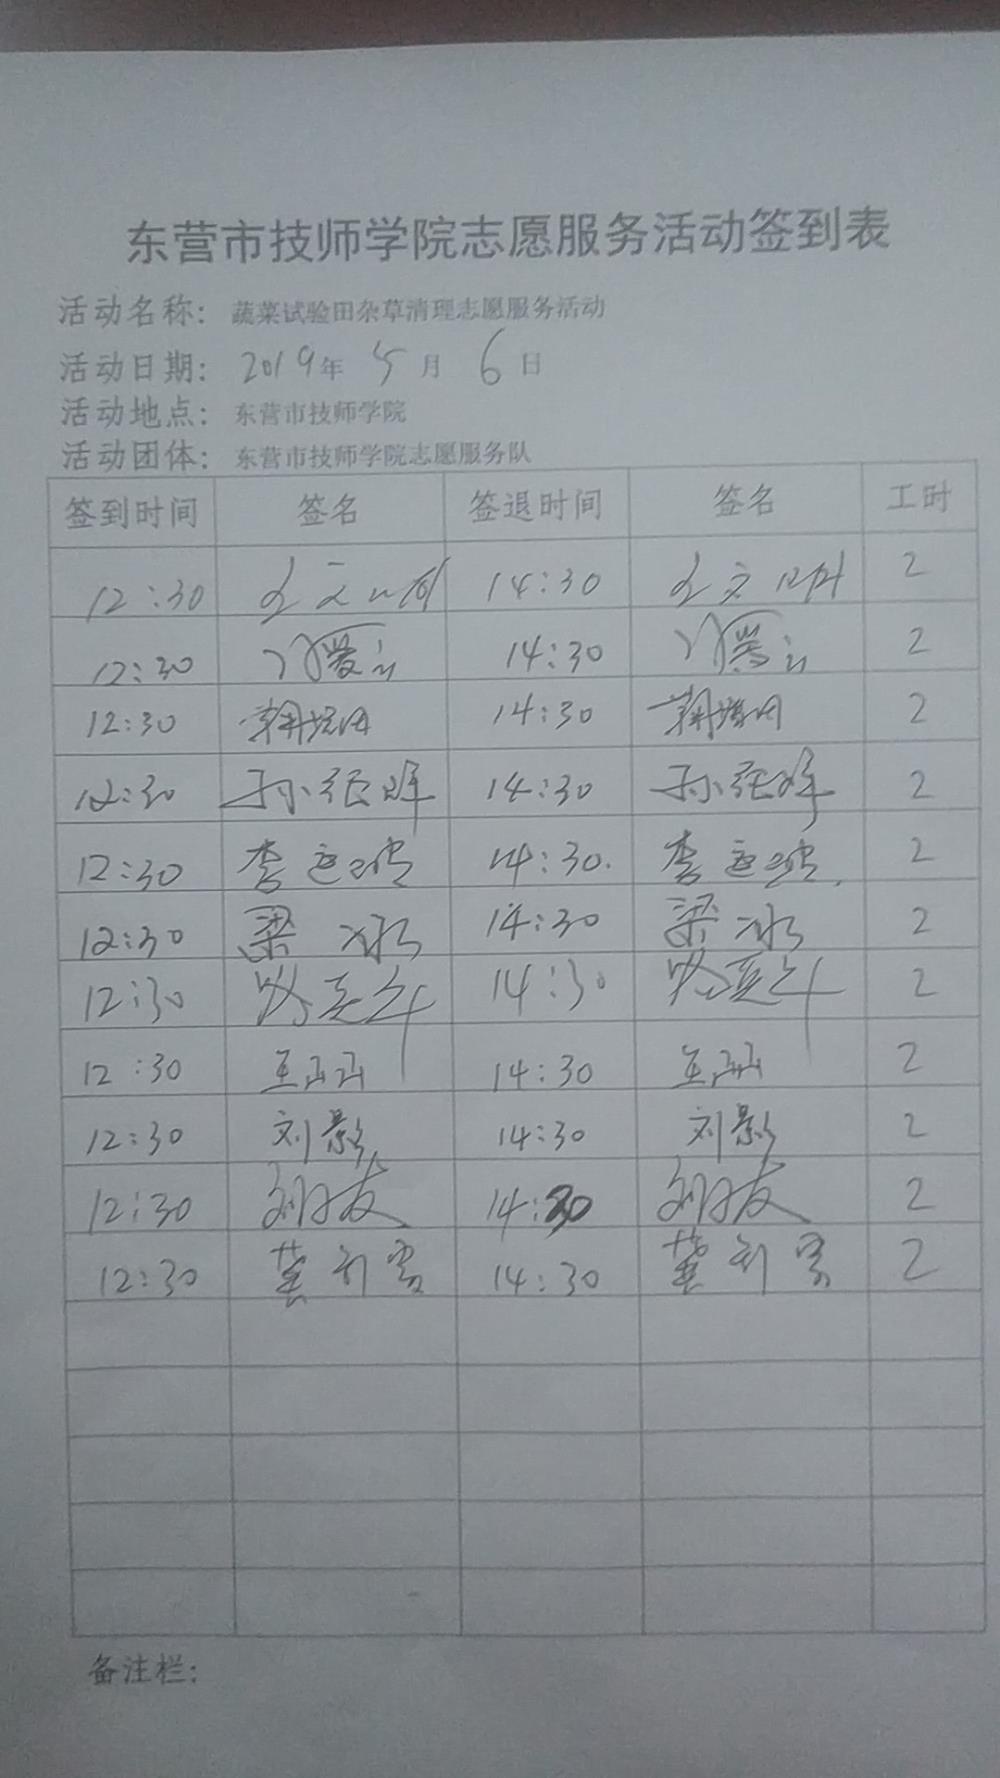 东营市技师学院志愿服务活动签到表
活动名称：蔬菜试验田杂草清理志愿服务活动
活动日期：2019年 5月 6日
活动地点：东营市技师学院
活动团体：东营市技师学院志愿服务队
签到时间 签名 签退时间 签名 工时
12:30 14:30 2
12:30 14:30 2
12:30 14:30 2
12:30 孙 14:30 孙 2
12:30 李 14:30. 李 2
12:30 梁冰 14:30 梁冰 2
12:30 14:30 2
12:30 王 14:30 王 2
12:30 刘影 14:30 刘影 2
12:30 友 14:30 友 2
12:30 14:30 2
备注栏：